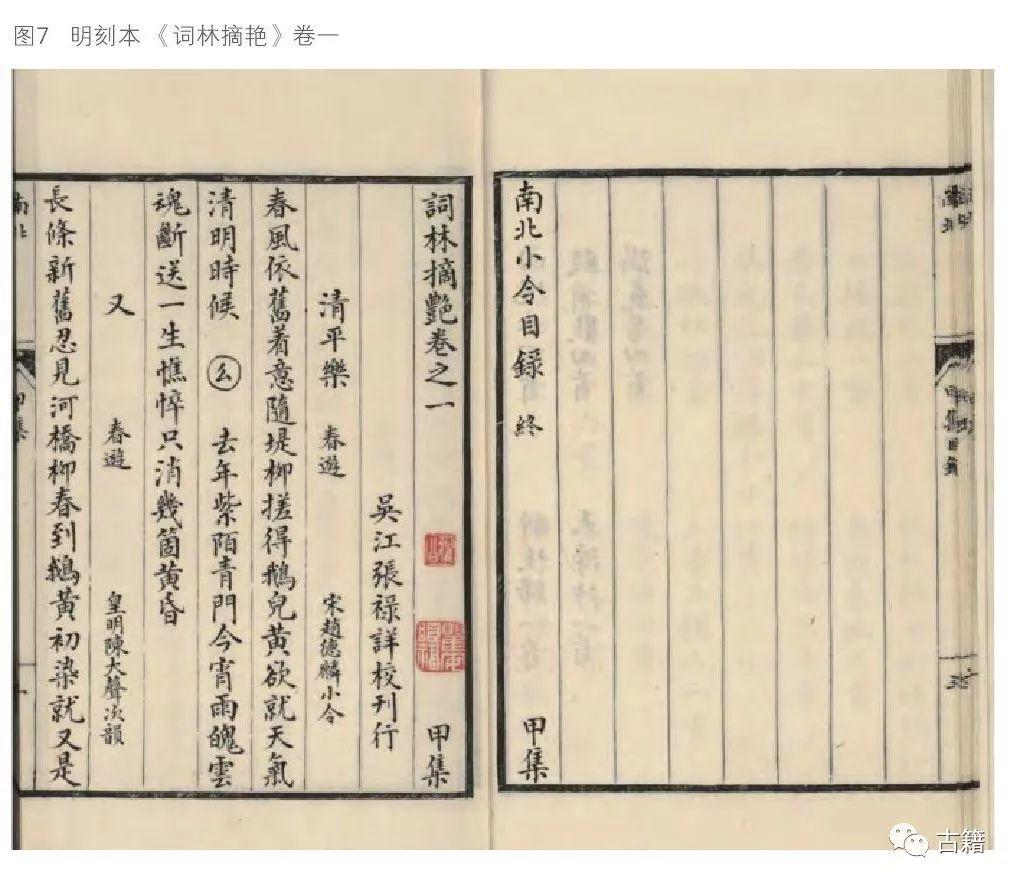 图7 明刻本《词林摘艳》卷一
南北小令目録終 甲集
詞林摘艷卷之一 甲集
吳江張祿詳校刊行
清平樂 春遊 宋趙德麟小令
春風依舊着意隨堤柳搓得鵝兒黃欲就天氣
清明時候 ㄙ 去年紫陌青門今宵雨魄雲
魂斷送一生憔悴只消幾箇黃昏
又 春遊 皇明陳大聲次韻
長條新舊忍見河橋柳春到鵝黃初染就又是
古籍